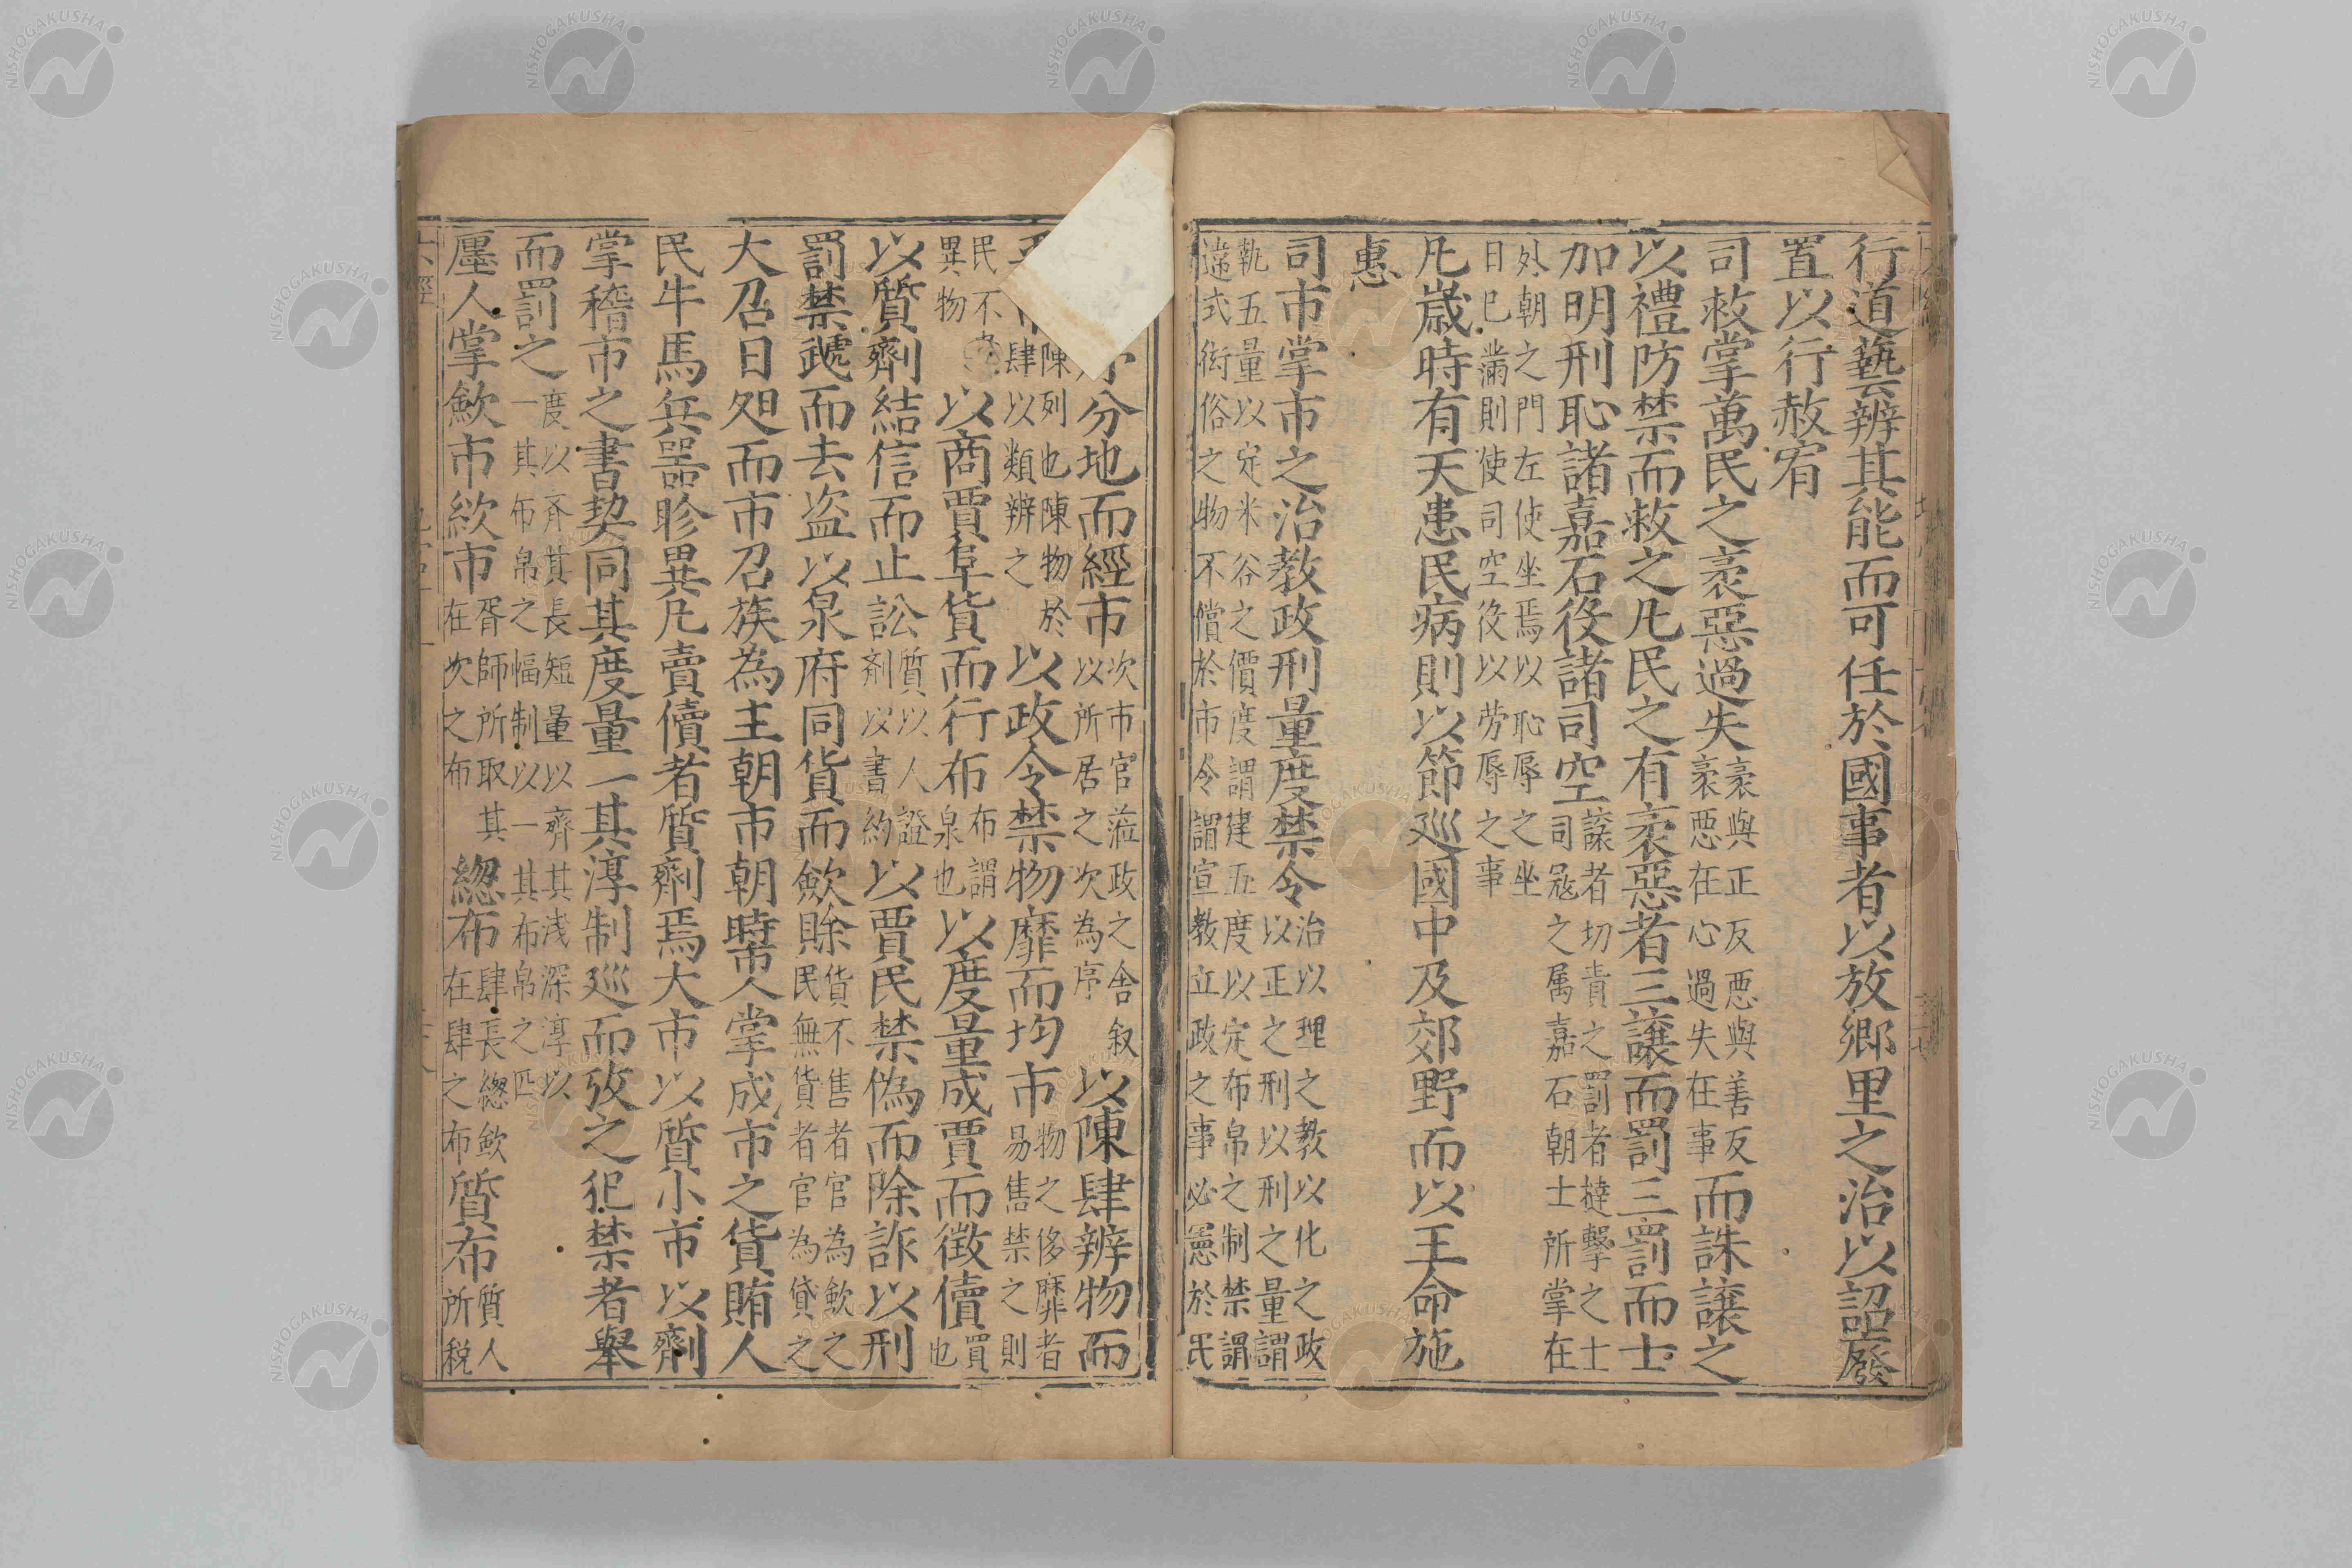 行道藝辨其能而可任於國事者以放鄉里之治以詔廢
置以行赦宥
司救掌萬民之衺惡過失衺與正反惡與善反衺惡在心過失在事而誅讓之
以禮防禁而救之凡民之有衺惡者三讓而罰三罰而士
加明刑恥諸嘉石役諸司空讓者切責之罰者撻擊之士司寇之属嘉石朝士所掌在
外朝之門左使坐焉以恥辱之坐日巳滿則使司空役以劳辱之事
凡歲時有天患民病則以節廵國中及郊野而以王命施
惠
司市掌市之治教政刑量度禁令治以理之教以化之政以正之刑以刑之量謂
執五量以定米谷之價度謂建五度以定布帛之制禁謂違式衒俗之物不儅於市令謂宣教立政之事必憲於民
分地而經市次市官涖政之舍叙以所居之次為序以陳肆辨物而
陳列也陳物於肆以類辨之以政令禁物靡而均市物之侈靡者易售禁之則
民不異物以商賈阜貨而行布布謂泉也以度量成賈而徵儥買也
以質劑結信而止訟質以人證剤以書約以賈民禁偽而除詐以刑
罰禁虣而去盜以泉府同貨而歛賒貨不售者官為歛之民無貨者官為貸之
大召日夗而市召族為主朝市朝時市人掌成市之貨賄人
民牛馬兵噐眕異凡賣儥者質劑焉大市以質小市以劑
掌稽市之書契同其度量一其淳制廵而攷之犯禁者舉
而罰之度以齐其長短量以齊其浅深淳以一其布帛之幅制以一其布帛之匹
廛人掌歛市欻市胥師所取其在次之布緫布肆長緫歛在肆之布質布質人所税
NISHOGAKUSHA